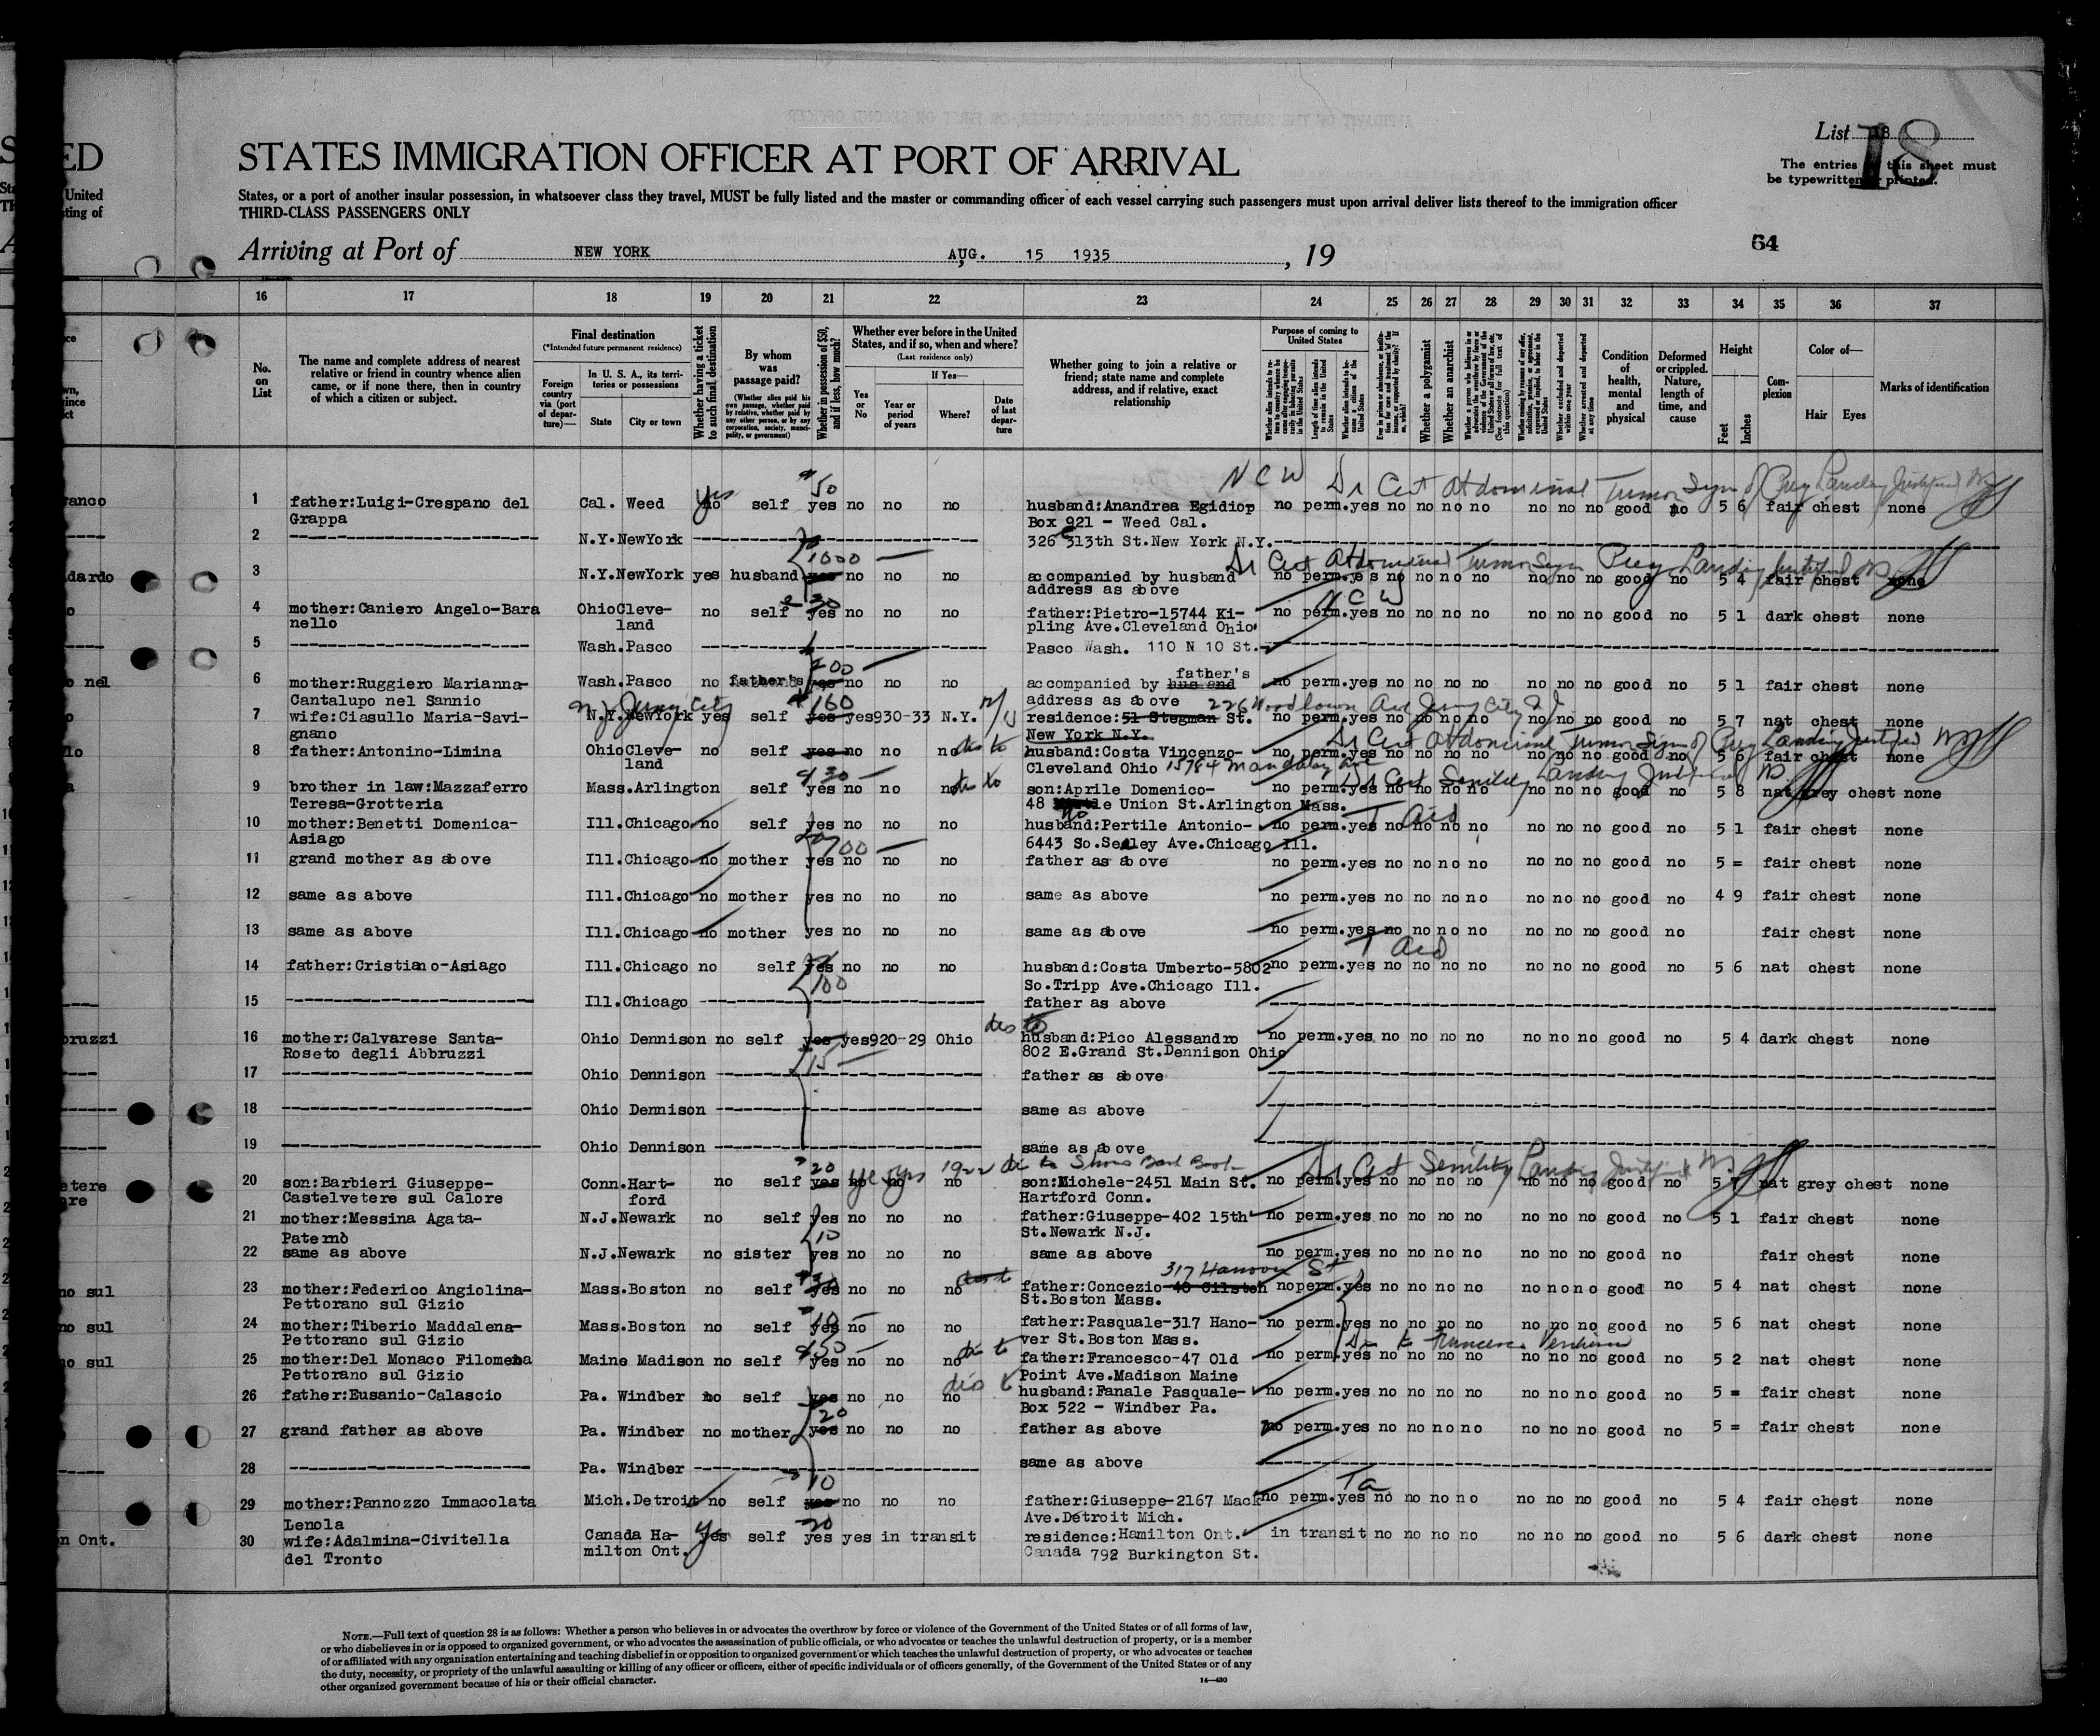 List 18
18
The entries on this sheet must
be typewritten or printed.
ED
STATES IMMIGRATION OFFICER AT PORT OF ARRIVAL
United
ting of
States, or a port of another insular possession, in whatsoever class they travel, MUST be fully listed and the master or commanding officer of each vessel carrying such passengers must upon arrival deliver lists thereof to the immigration officer
THIRD-CLASS PASSENGERS ONLY
Arriving at Port of NEW YORK AUG. 15 1935, 19
64
16 17 18 19 20 21 22 23 24 25 26 27 28 29 30 31 32 33 34 35 36 37
No. on List
The name and complete address of nearest relative or friend in country whence alien came, or if none there, then in country of which a citizen or subject.
Final destination
(*Intended future permanent residence)
Foreign country via (port of departure)—
In U. S. A., its territories or possessions
State City or town
Whether having a ticket to such final destination
By whom was passage paid?
(Whether alien paid his own passage, whether paid by relative, whether paid by any other person, or by any corporation, society, municipality, or government)
Whether in possession of $50, and if less, how much?
Whether ever before in the United States, and if so, when and where?
(Last residence only)
Yes or No
If Yes—
Year or period of years
Where?
Date of last departure
Whether going to join a relative or friend; state name and complete address, and if relative, exact relationship
Purpose of coming to United States
Length of time alien intends to remain in the United States
Whether a polygamist
Whether an anarchist
Whether arrested and deported at any time
Condition of health, mental and physical
Deformed or crippled. Nature, length of time, and cause
Height
Feet Inches
Complexion
Color of—
Hair Eyes
Marks of identification
NCW Dr Cert Abdominal Tumor Sym of Preg Landing Justified
$50
1 father:Luigi-Crespano del Cal. Weed yes no self yes no no no husband:Anandrea Egidio Box 921 - Weed Cal. no perm.yes no no no no no no no good no 5 6 fair chest none
Grappa
2 N.Y.NewYork 326 E 313th St.New York N.Y.
1000
Dr Cert Abdominal Tumor Sym Preg Landing Justified
3 N.Y.NewYork yes husband yes no no no accompanied by husband no perm.yes no no no no no no no good no 5 4 fair chest none
address as above
30 NCW
4 mother:Caniero Angelo-Bara Ohio Cleve- no self yes no no no father:Pietro-15744 Ki- no perm.yes no no no no no no no good no 5 1 dark chest none
nello land pling Ave.Cleveland Ohio
5 Wash.Pasco Pasco Wash. 110 N 10 St.
father's
6 mother:Ruggiero Marianna- Wash.Pasco no father's yes no no no accompanied by husband no perm.yes no no no no no no no good no 5 1 fair chest none
Cantalupo nel Sannio address as above
N.J. Jersey City 160 226 Woodlawn Ave Jersey City N.J.
7 wife:Ciasullo Maria-Savi- N.Y.NewYork yes self yes yes930-33 N.Y. residence:51 Stegman St. no perm.yes no no no no no no no good no 5 7 nat chest none
gnano New York N.Y.
Dr Cert Abdominal Tumor Sym of Preg Landing Justified
8 father:Antonino-Limina Ohio Cleve- no self yes no no no dis to husband:Costa Vincenzo- no perm.yes no no no no no no no good no 5 6 fair chest none
land Cleveland Ohio 15784 Mandalay Ave
$30 Dr Cert Senility Landing Justified
9 brother in law:Mazzaferro Mass.Arlington self yes no no no dis to son:Aprile Domenico- no perm.yes no no no no no no no good no 5 8 nat grey chest none
Teresa-Grotteria 48 Union St.Arlington Mass.
T Aid
10 mother:Benetti Domenica- Ill.Chicago no self yes no no no husband:Pertile Antonio- no perm.yes no no no no no no no good no 5 1 fair chest none
Asiago 6443 So.Seeley Ave.Chicago Ill.
11 grand mother as above Ill.Chicago no mother yes no no no father as above no perm.yes no no no no no no no good no 5 = fair chest none
12 same as above Ill.Chicago no mother yes no no no same as above no perm.yes no no no no no no no good no 4 9 fair chest none
13 same as above Ill.Chicago no mother yes no no no same as above no perm.yes no no no no no no no good no fair chest none
T Aid
14 father:Cristiano-Asiago Ill.Chicago no self yes no no no husband:Costa Umberto-5802 no perm.yes no no no no no no no good no 5 6 nat chest none
100 So.Tripp Ave.Chicago Ill.
15 Ill.Chicago father as above
dis to
16 mother:Calvarese Santa- Ohio Dennison no self yes yes920-29 Ohio husband:Pico Alessandro no perm.yes no no no no no no no good no 5 4 dark chest none
Roseto degli Abbruzzi 15 802 E.Grand St.Dennison Ohio
17 Ohio Dennison father as above
18 Ohio Dennison same as above
19 Ohio Dennison same as above
$20 yes yrs 1922 dis to Shows Bank Book Dr Cert Senility Landing Justified
20 son:Barbieri Giuseppe- Conn.Hart- no self yes no no no son:Michele-2451 Main St. no perm.yes no no no no no no no good no 5 nat grey chest none
Castelvetere sul Calore ford Hartford Conn.
21 mother:Messina Agata- N.J.Newark no self yes no no no father:Giuseppe-402 15th no perm.yes no no no no no no no good no 5 1 fair chest none
Paternò 10 St.Newark N.J.
22 same as above N.J.Newark no sister yes no no no same as above no perm.yes no no no no no no no good no fair chest none
317 Hanover St
23 mother:Federico Angiolina- Mass.Boston no self yes no no no dis to father:Concezio-40 Gilston no perm.yes no no no no no no no good no 5 4 nat chest none
Pettorano sul Gizio St.Boston Mass.
10
24 mother:Tiberio Maddalena- Mass.Boston no self yes no no no father:Pasquale-317 Hano- no perm.yes no no no no no no no good no 5 6 nat chest none
Pettorano sul Gizio ver St.Boston Mass.
$50 dis to
25 mother:Del Monaco Filomena Maine Madison no self yes no no no father:Francesco-47 Old no perm.yes no no no no no no no good no 5 2 nat chest none
Pettorano sul Gizio Point Ave.Madison Maine
dis to
26 father:Eusanio-Calascio Pa. Windber no self yes no no no husband:Fanale Pasquale- no perm.yes no no no no no no no good no 5 = fair chest none
20 Box 522 - Windber Pa.
27 grand father as above Pa. Windber no mother yes no no no father as above no perm.yes no no no no no no no good no 5 = fair chest none
28 Pa. Windber same as above
10 Ta
29 mother:Pannozzo Immacolata Mich.Detroit no self yes no no no father:Giuseppe-2167 Mack no perm.yes no no no no no no no good no 5 4 fair chest none
Lenola Ave.Detroit Mich.
20
30 wife:Adalmina-Civitella Canada Ha- yes self yes yes in transit residence:Hamilton Ont. in transit no no no no no no no good no 5 6 dark chest none
del Tronto milton Ont. Canada 792 Burkington St.
NOTE.—Full text of question 28 is as follows: Whether a person who believes in or advocates the overthrow by force or violence of the Government of the United States or of all forms of law,
or who disbelieves in or is opposed to organized government, or who advocates the assassination of public officials, or who advocates or teaches the unlawful destruction of property, or is a member
of or affiliated with any organization entertaining and teaching disbelief in or opposition to organized government or which teaches the unlawful destruction of property, or who advocates or teaches
the duty, necessity, or propriety of the unlawful assaulting or killing of any officer or officers, either of specific individuals or of officers generally, of the Government of the United States or of any
other organized government because of his or their official character.
14—430